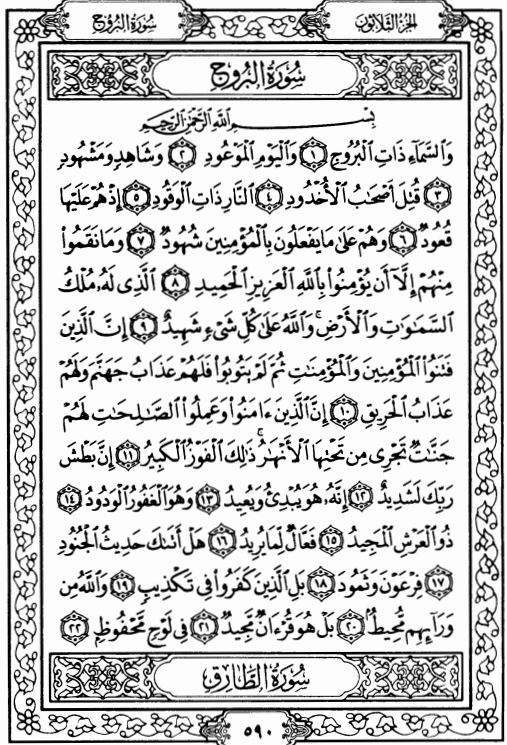 سُورَةُ البُرُوجِ
الجُزْءُ الثَّلَاثُونَ
سُورَةُ البُرُوجِ
بِسْمِ اللَّهِ الرَّحْمَٰنِ الرَّحِيمِ
وَالسَّمَاءِ ذَاتِ الْبُرُوجِ ١ وَالْيَوْمِ الْمَوْعُودِ ٢ وَشَاهِدٍ وَمَشْهُودٍ
٣ قُتِلَ أَصْحَابُ الْأُخْدُودِ ٤ النَّارِ ذَاتِ الْوَقُودِ ٥ إِذْ هُمْ عَلَيْهَا
قُعُودٌ ٦ وَهُمْ عَلَىٰ مَا يَفْعَلُونَ بِالْمُؤْمِنِينَ شُهُودٌ ٧ وَمَا نَقَمُوا
مِنْهُمْ إِلَّا أَن يُؤْمِنُوا بِاللَّهِ الْعَزِيزِ الْحَمِيدِ ٨ الَّذِي لَهُ مُلْكُ
السَّمَاوَاتِ وَالْأَرْضِ ۚ وَاللَّهُ عَلَىٰ كُلِّ شَيْءٍ شَهِيدٌ ٩ إِنَّ الَّذِينَ
فَتَنُوا الْمُؤْمِنِينَ وَالْمُؤْمِنَاتِ ثُمَّ لَمْ يَتُوبُوا فَلَهُمْ عَذَابُ جَهَنَّمَ وَلَهُمْ
عَذَابُ الْحَرِيقِ ١٠ إِنَّ الَّذِينَ ءَامَنُوا وَعَمِلُوا الصَّالِحَاتِ لَهُمْ
جَنَّاتٌ تَجْرِي مِن تَحْتِهَا الْأَنْهَارُ ۚ ذَٰلِكَ الْفَوْزُ الْكَبِيرُ ١١ إِنَّ بَطْشَ
رَبِّكَ لَشَدِيدٌ ١٢ إِنَّهُ هُوَ يُبْدِئُ وَيُعِيدُ ١٣ وَهُوَ الْغَفُورُ الْوَدُودُ ١٤
ذُو الْعَرْشِ الْمَجِيدُ ١٥ فَعَّالٌ لِّمَا يُرِيدُ ١٦ هَلْ أَتَاكَ حَدِيثُ الْجُنُودِ
١٧ فِرْعَوْنَ وَثَمُودَ ١٨ بَلِ الَّذِينَ كَفَرُوا فِي تَكْذِيبٍ ١٩ وَاللَّهُ مِن
وَرَائِهِم مُّحِيطٌ ٢٠ بَلْ هُوَ قُرْءَانٌ مَّجِيدٌ ٢١ فِي لَوْحٍ مَّحْفُوظٍ ٢٢
سُورَةُ الطَّارِقِ
٥٩٠